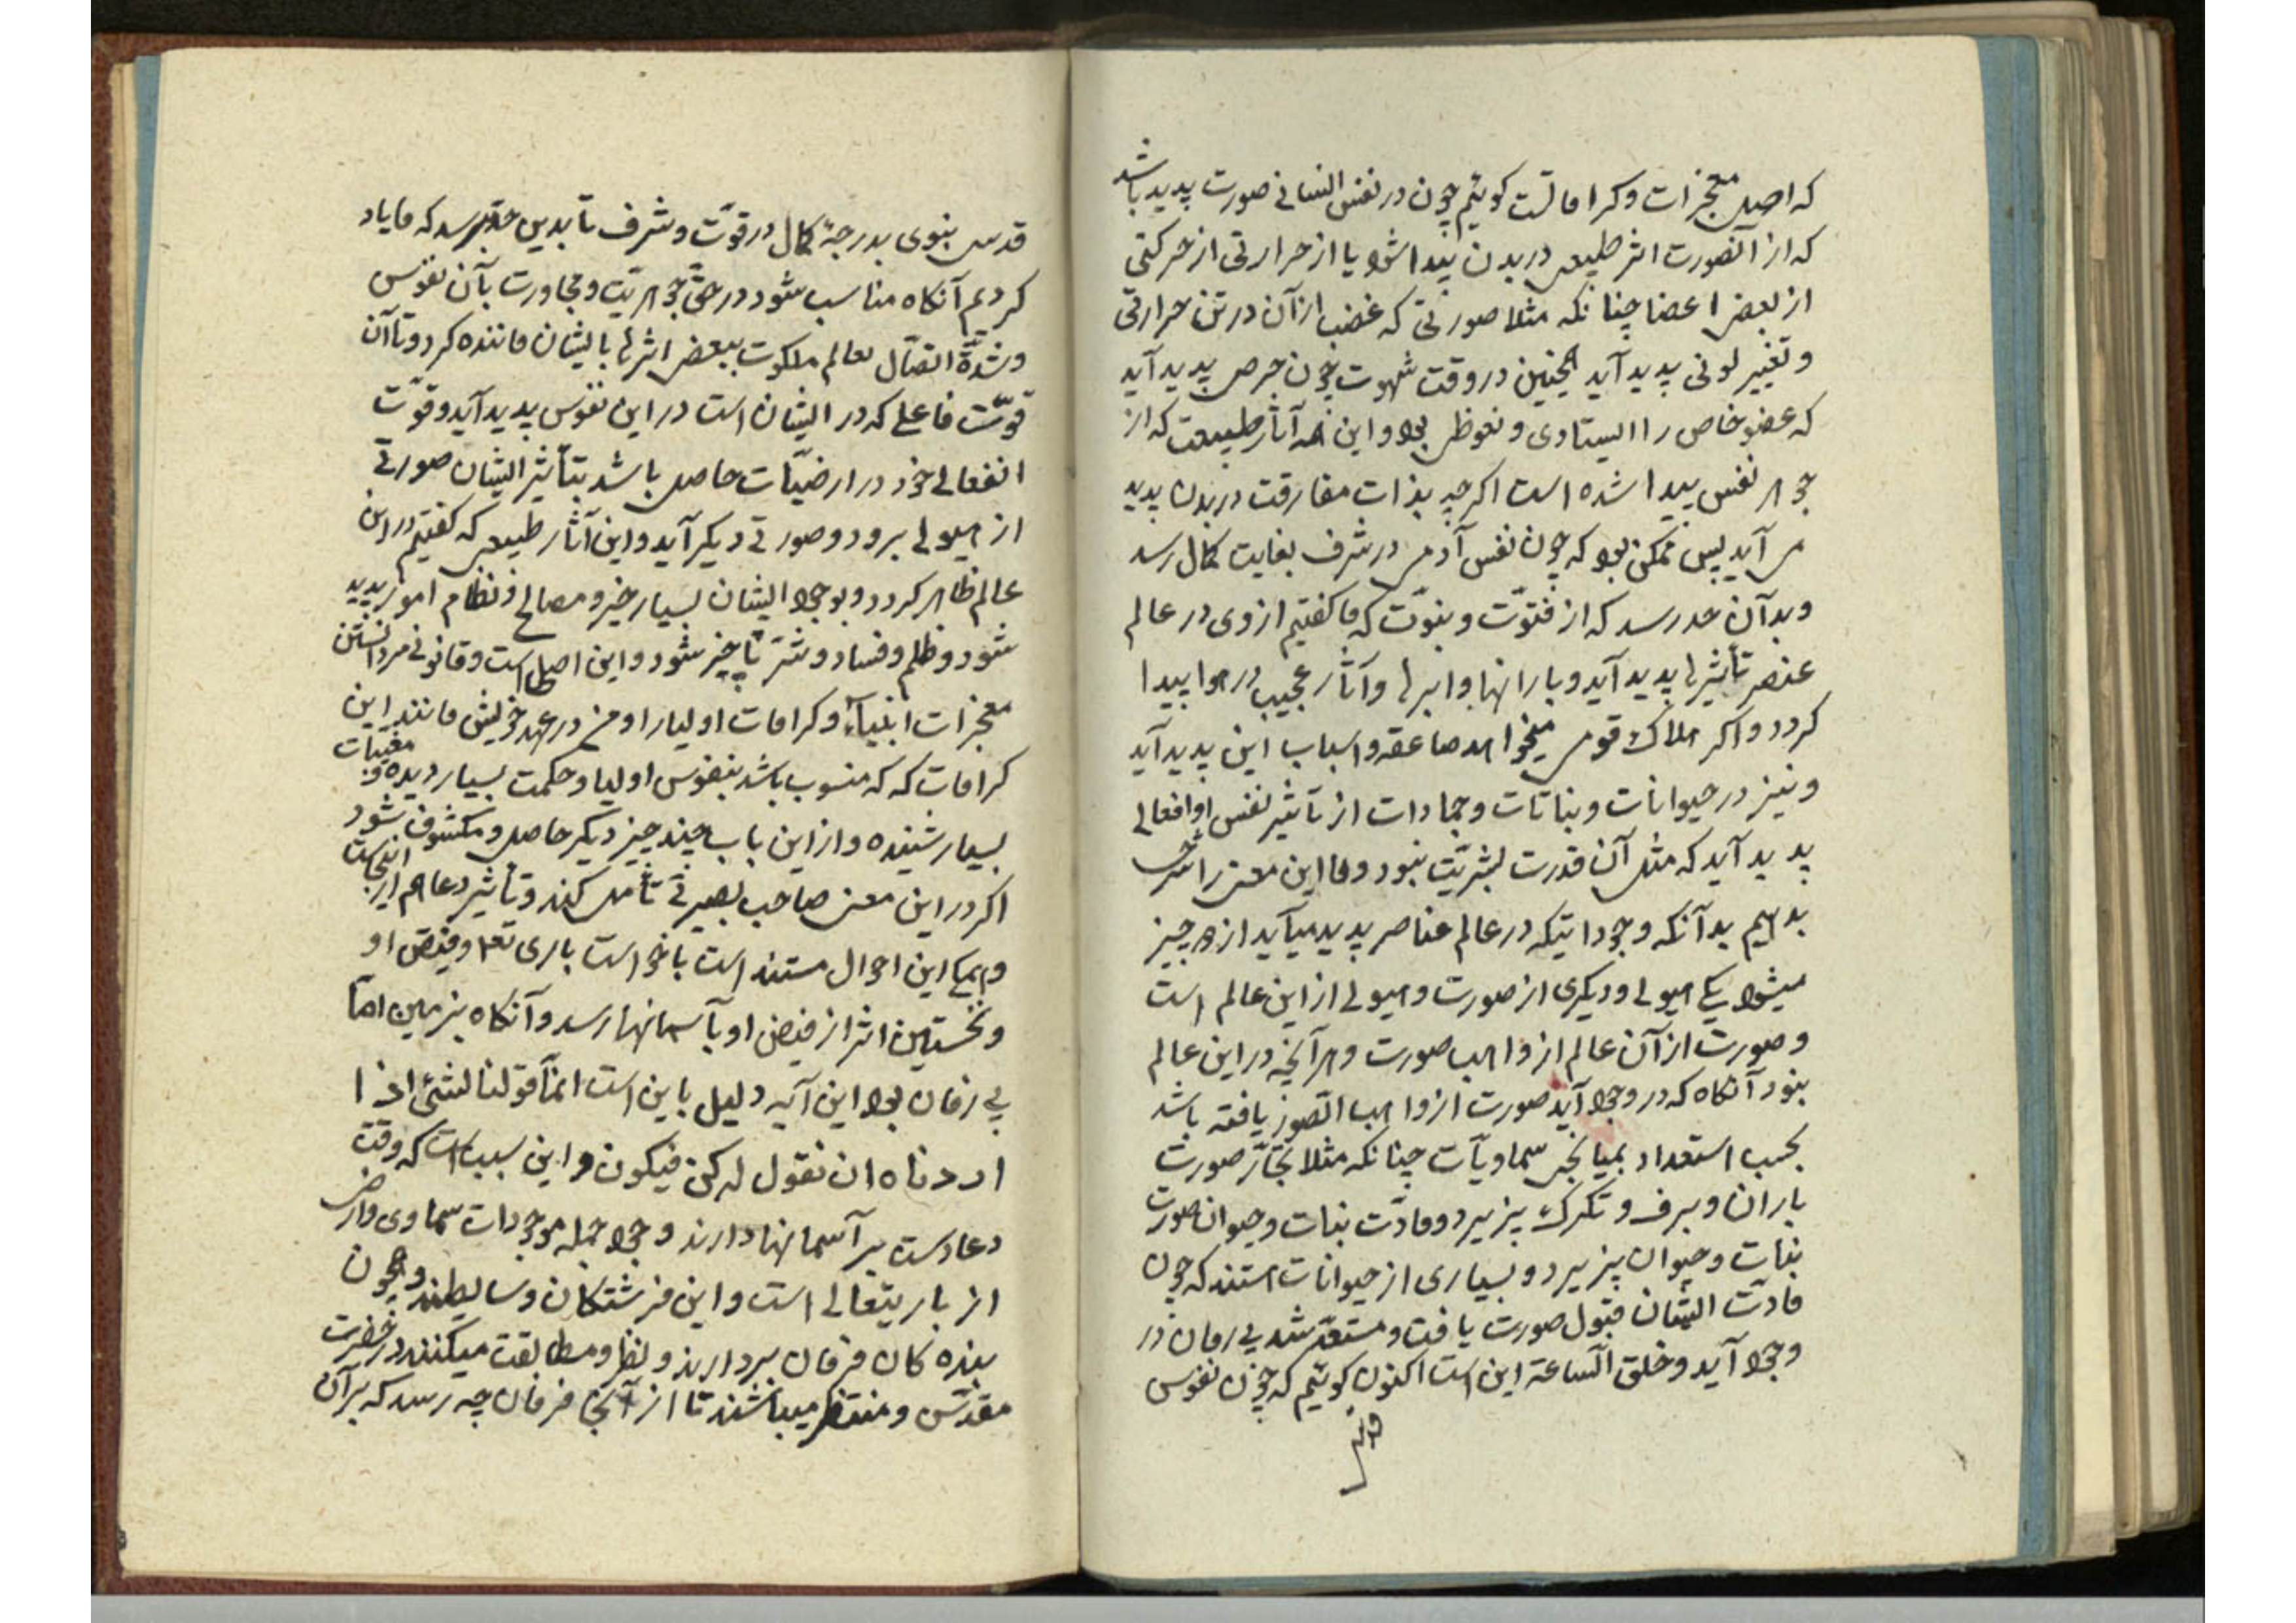 که اصل معجزات و کراماتست کوئیم چون در نفس انسانی صورت پدید باشد
که از آنصورت اثر طبیعی در بدن پیدا شود یا از حرارتی از حرکتی
از بعض اعضا چنانکه مثلا صورتی که غضب از آن در تن حرارتی
و تغییر لونی پدید آید همچنین در وقت شهوت چون حرص پدید آید
که عضو خاص را ایستادی و نعوظ بود و این همه آثار طبیعت که از
جوهر نفس پیدا شده است اکرچه بذات مفارقت در بدن پدید
می آید پس ممکن بود که چون نفس آدمی در شرف بغایت کمال رسد
و بدآن حد رسد که از فتوّت و نبوّت که ما کفتیم از وی در عالم
عنصر تأثیرها پدید آید و بارانها و ابرها و آثار عجیب در هوا پیدا
کردد و اکر هلاک قومی میخواهد صاعقه و اسباب این پدید آید
و نیز در حیوانات و نباتات و جمادات از تأثیر نفس او افعالی
پدید آید که مثل آن قدرت بشریّت نبود و ما این معنی را شرح
بدهیم بدآنکه وجوداتیکه در عالم عناصر پدید میآید از دو چیز
میشود یکی هیولی و دیکری از صورت و هیولی از این عالم است
و صورت از آن عالم از واهب صورت و هرآنچه در این عالم
نبود آنکاه که در وجود آید صورت از واهب الصّور یافته باشد
بحسب استعداد بمیانجی سماویّات چنانکه مثلا بخار صورت
باران و برف و تکرک پذیرد و مادّت نبات و حیوان صورت
نبات و حیوان پذیرد و بسیاری از حیوانات استند که چون
مادّت ایشان قبول صورت یافت و مستعدّ شد بی زمان در
وجود آید و خلق السّاعة این است اکنون کوئیم که چون نفوس
قدسی
قدس نبوی بدرجهٔ کمال در قوّت و شرف تا بدین حدّ برسد که ما یاد
کردیم آنکاه مناسب شود در حقّ جوهریّت و مجاورت بآن نفوس
و شدّة اتصّال بعالم ملکوت ببعض اثرها بایشان ماننده کردد تا آن
قوّت فاعلی که در ایشان است در این نفوس پدید آید و قوّت
انفعالی خود در ارضیّات حاصل باشد بتأثیر ایشان صورتی
از هیولی برود و صورتی دیکر آید و این آثار طبیعی که کفتیم در این
عالم ظاهر کردد و بوجود ایشان بسیار خیر و مصالح و نظام امور پدید
شود و ظلم و فساد و شرّ ناچیز شود و این اصلی است و قانونی مر دانستن
معجزات انبیآء و کرامات اولیا را و من در عهد خویش مانند این
کرامات که که منسوب باشد بنفوس اولیا و حکمت بسیار دیده و مغیبات
بسیار شنیده و از این باب چند چیز دیکر حاصل و مکشوف شود
اکر در این معنی صاحب بصیرتی تأمّل کند و تأثیر دعا هم از اینجاست
و همکی این احوال مستند است باخواست باری تع و فیض او
و نخستین اثر از فیض او بآسمانها رسد و آنکاه بزمین امّا
بی زمان بود این آیه دلیل باین است انمّا قولنا لشئ اذا
اردناه ان نقول له کن فیکون و این سبب است که وقت
دعا دست بر آسمانها دارند وجود جمله موجودات سماوی و ارضی
از باریتعالی است و این فرشتکان وسایطند و همچون
بنده کان فرمان بردارند و نظر و مطابقت میکنند در حضرت
مقدّس و منتظر میباشند تا از آنجا فرمان چه رسد که بر آن